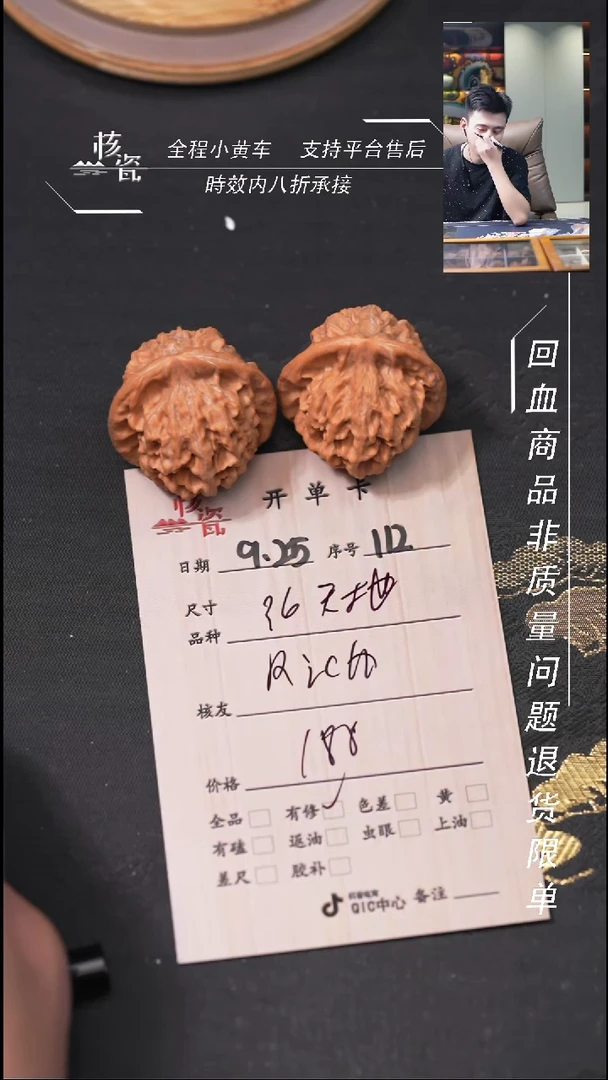 核瓷
全程小黄车 支持平台售后
時效内八折承接
回血商品非质量问题退货限单
核瓷
开单卡
日期 9.25 序号 112
尺寸 36 天地
品种
Rich
核友
188
价格
全品 有修 ✓ 色差 黄
有磕 返油 虫眼 上油
差尺 胶补
QIC中心 备注